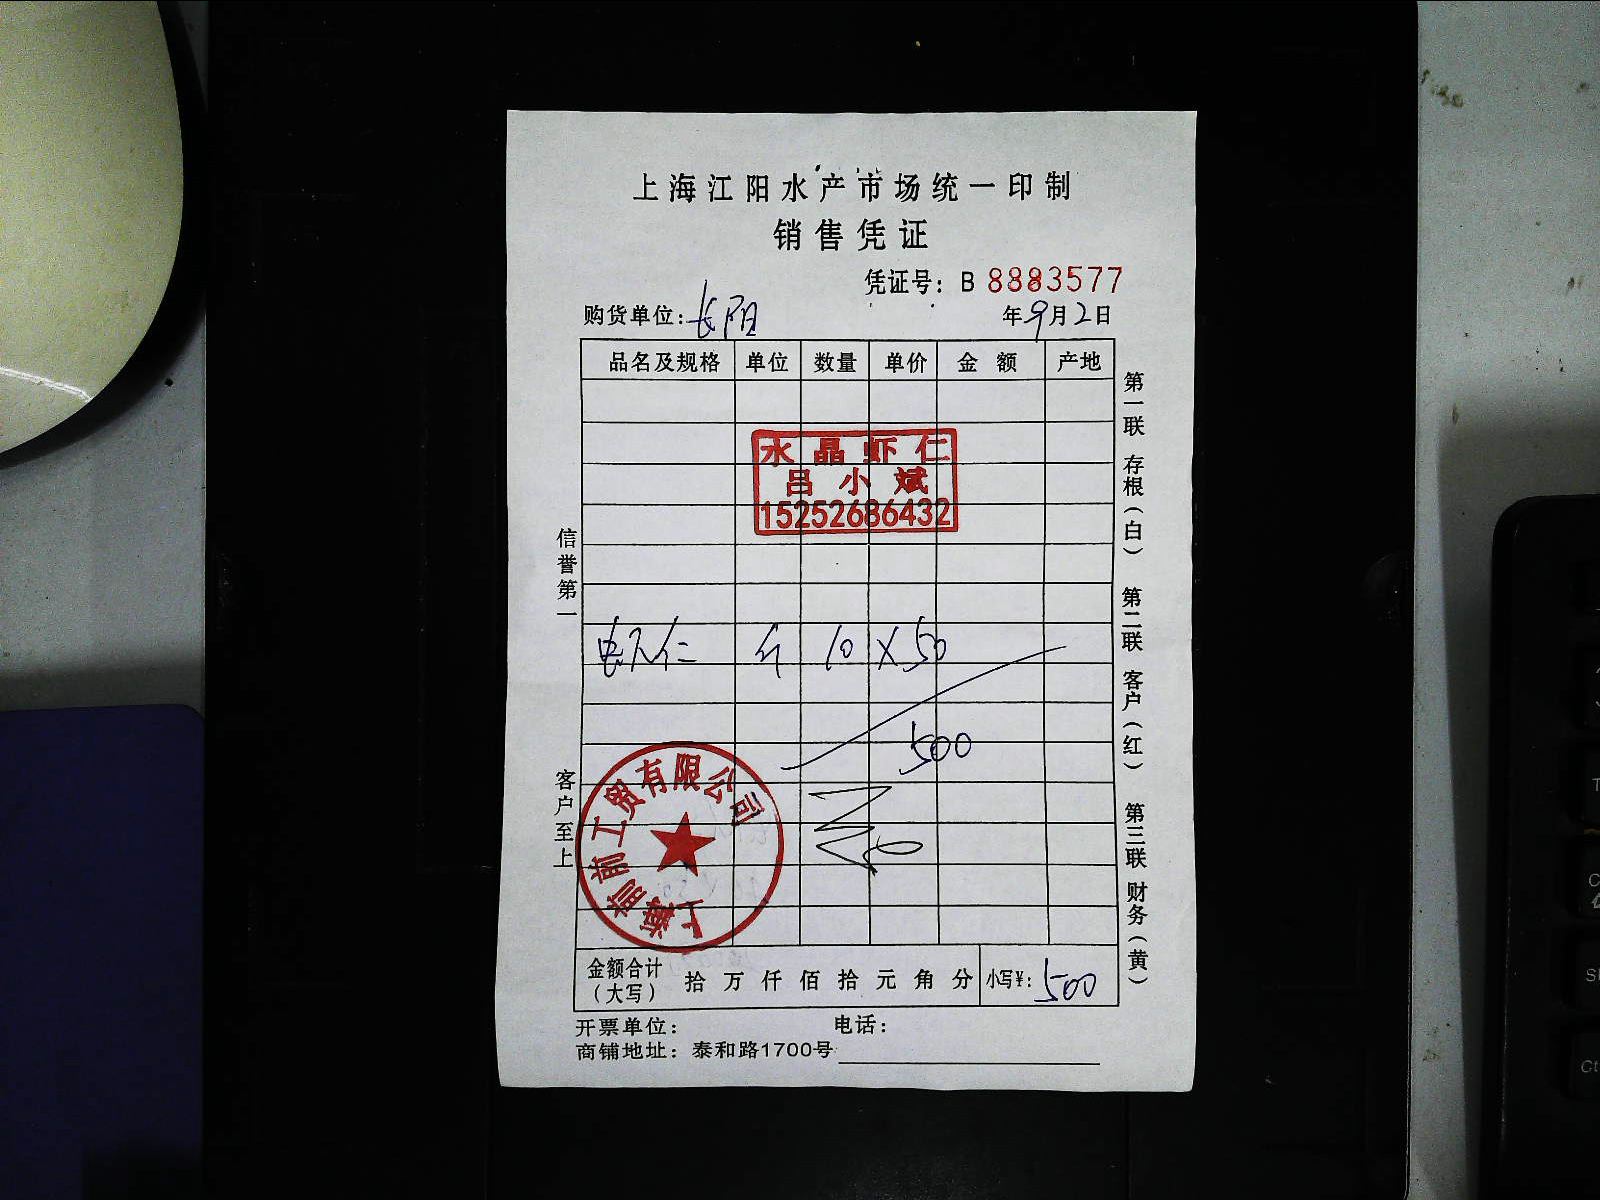 上海江阳水产市场统一印制
销售凭证
凭证号：B 8883577
购货单位：长阳 年9月2日
品名及规格 单位 数量 单价 金额 产地
水晶虾仁
吕小斌
15252686432
仁 斤 10 X 50
500
上海前前工贸有限公司
金额合计（大写） 拾万仟佰拾元角分 小写¥：500
开票单位： 电话：
商铺地址：泰和路1700号
信誉第一
客户至上
第一联 存根（白）
第二联 客户（红）
第三联 财务（黄）